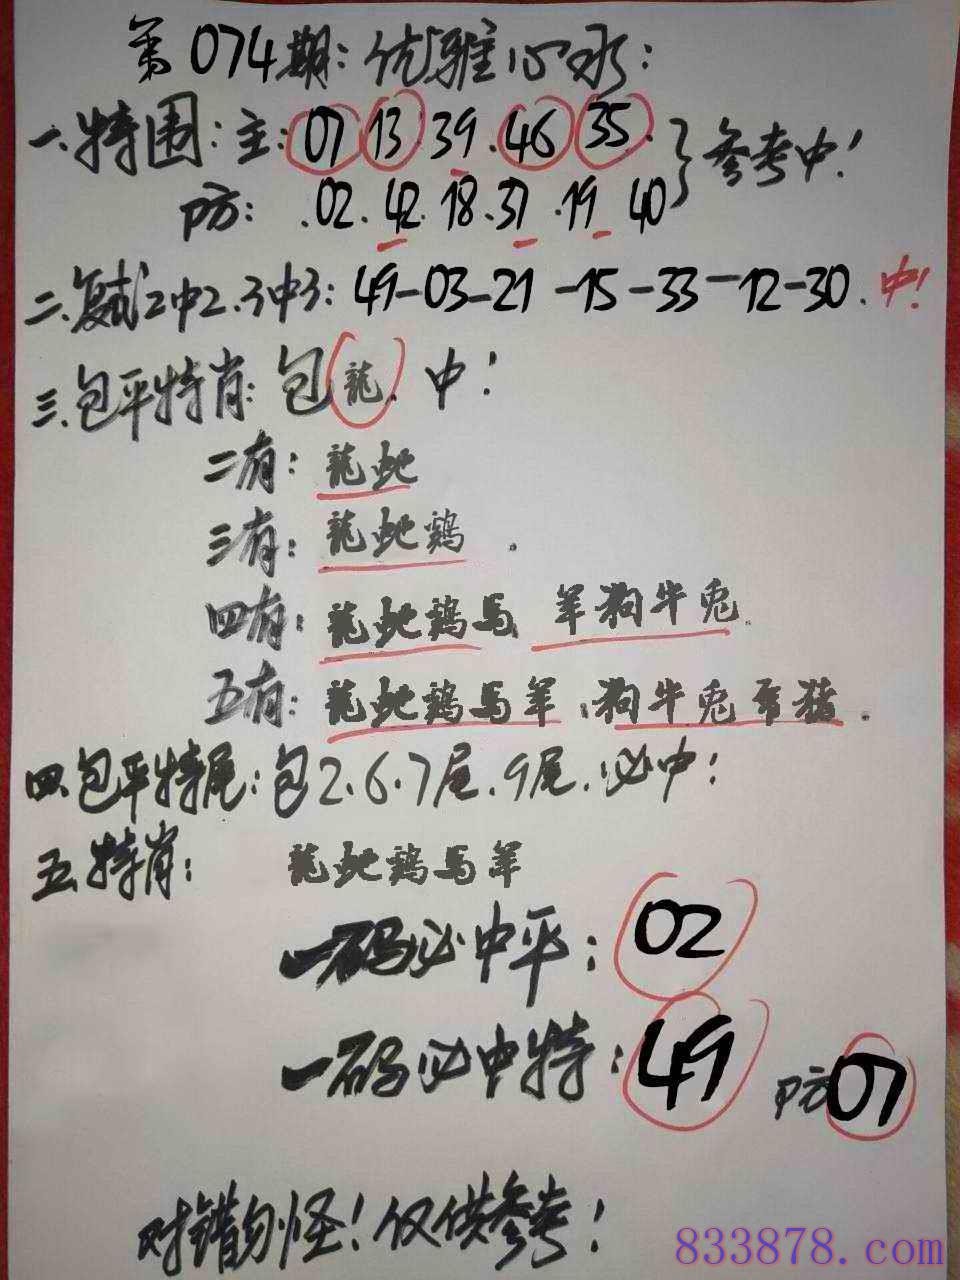 第074期:优雅心水:
一.特围:主:07 13.39.46 35.
参考中!
防:.02.42.18.37.19 40
二.复式2中2.3中3:49-03-21-15-33-12-30.中!
三.包平特肖:包龍.中!
二有:龍蛇
三有:龍蛇鷄.
四有:龍蛇鷄馬.羊狗牛兎.
五有:龍蛇鷄馬羊.狗牛兎 猪.
四.包平特尾:包2.6.7尾.9尾.必中!
五.特肖:龍蛇鷄馬羊
一码必中平:02
一码必中特:49 防07
对错勿怪!仅供参考!
833878.com